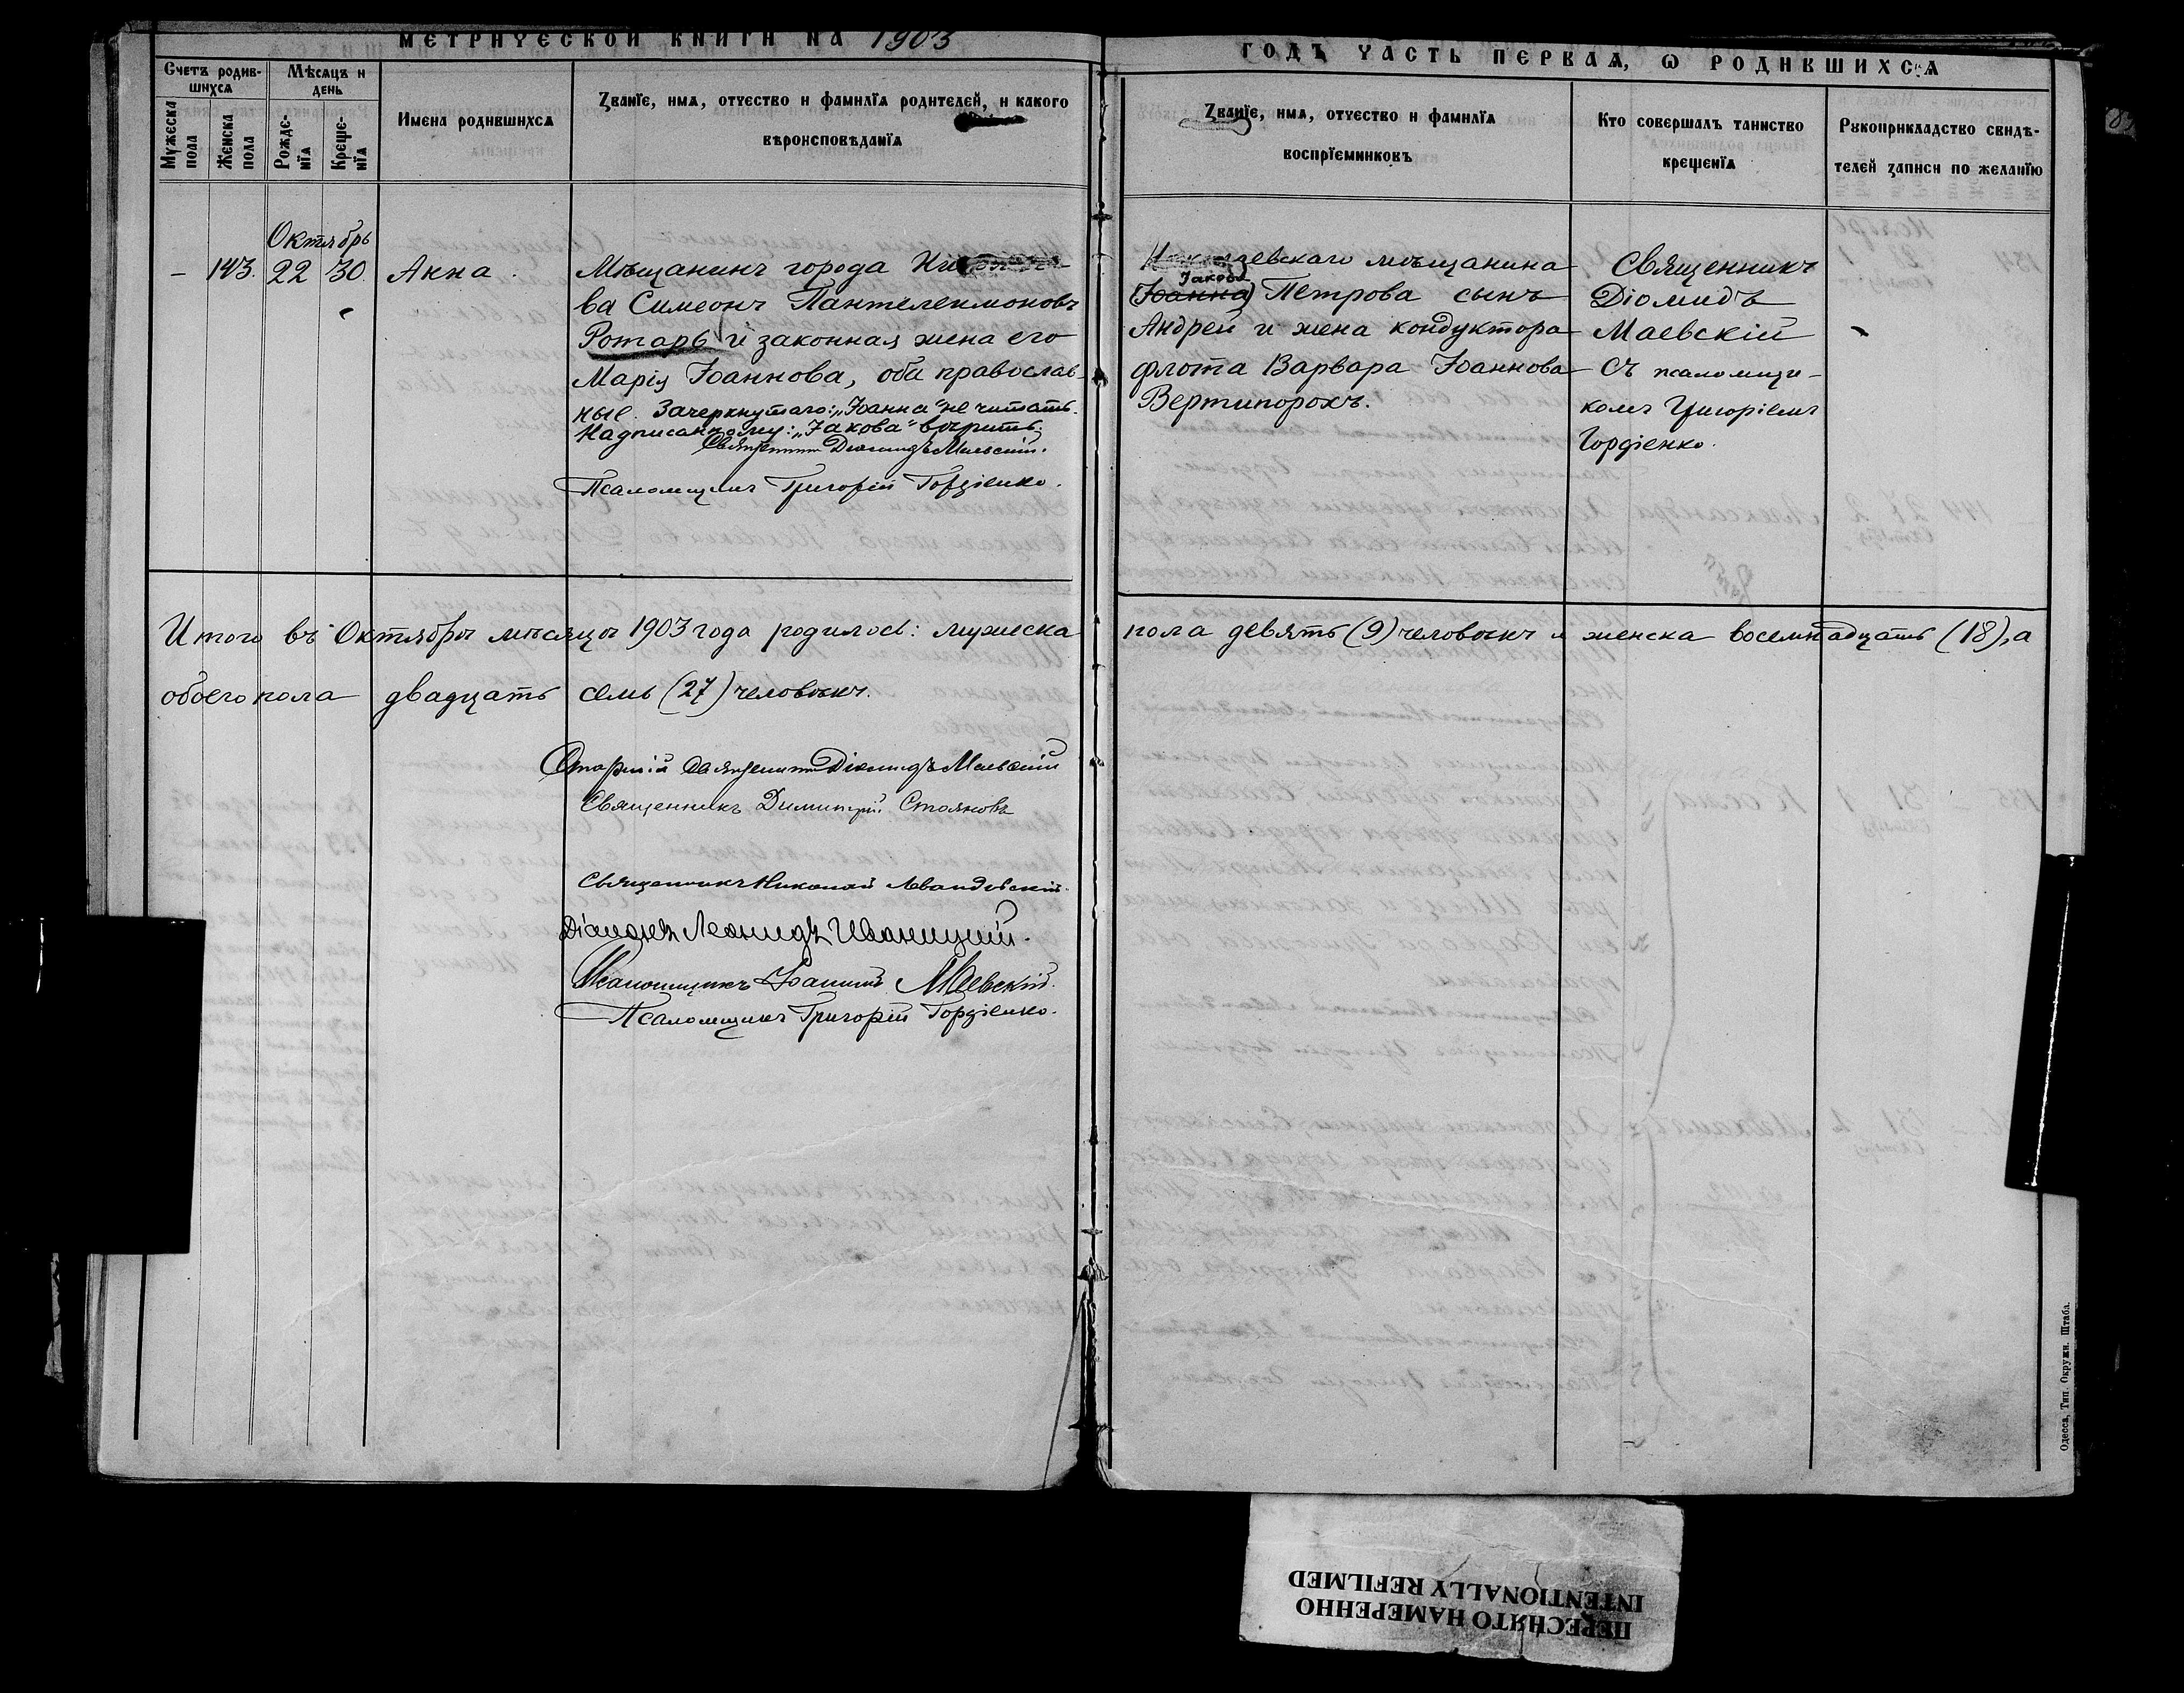 МЕТРИЧЕСКОЙ КНИГИ НА 1903
Счетъ родив-
шихся
Мѣсяцъ и
день
Мужеска
пола
Женска
пола
Рожде-
нїя
Креще-
нїя
Имена родившихся
Званїе, имя, отчество и фамилїя родителей, и какого
вѣроисповѣданїя
Октябрь
– 143. 22 30. Анна.
Мѣщанинъ города
ва Симеонъ Пантелеимоновъ
Ротарь и законная жена его
Марія Іоаннова, оба православ-
ные. Зачеркнутаго: „Іоанна" не читать.
Надписанному: „Іакова" вѣрить.
Священникъ Діомидъ Маевскій.
Псаломщикъ Григорій Гордіенко.
Итого въ Октябрѣ мѣсяцѣ 1903 года родилось: мужеска
обоего пола двадцать семь (27) человѣкъ.
Старшій Священникъ Діомидъ Маевскій
Священникъ Димитрій Стояновъ
Священникъ Николай Левандовскій.
Діаконъ Леонидъ Иваницкій.
Псаломщикъ Іоаннъ Маевскій.
Псаломщикъ Григорій Гордіенко.
ГОДЪ ЧАСТЬ ПЕРВАЯ, Ѡ РОДИВШИХСЯ
Званїе, имя, отчество и фамилїя
воспрїемниковъ
Кто совершалъ таинство
крещенїя
Рукоприкладство свидѣ-
телей записи по желанїю
Николаевскаго мѣщанина
Іакова
(Іоанна) Петрова сынъ
Андрей и жена кондуктора
флота Варвара Іоаннова
Вертипорохъ.
Священникъ
Діомидъ
Маевскій
съ псаломщи-
комъ Григоріемъ
Гордіенко.
пола девять (9) человѣкъ и женска восемнадцать (18), а
Одесса, Тип. Окружн. Штаба.
ПЕРЕСНЯТО НАМЕРЕННО
INTENTIONALLY REFILMED